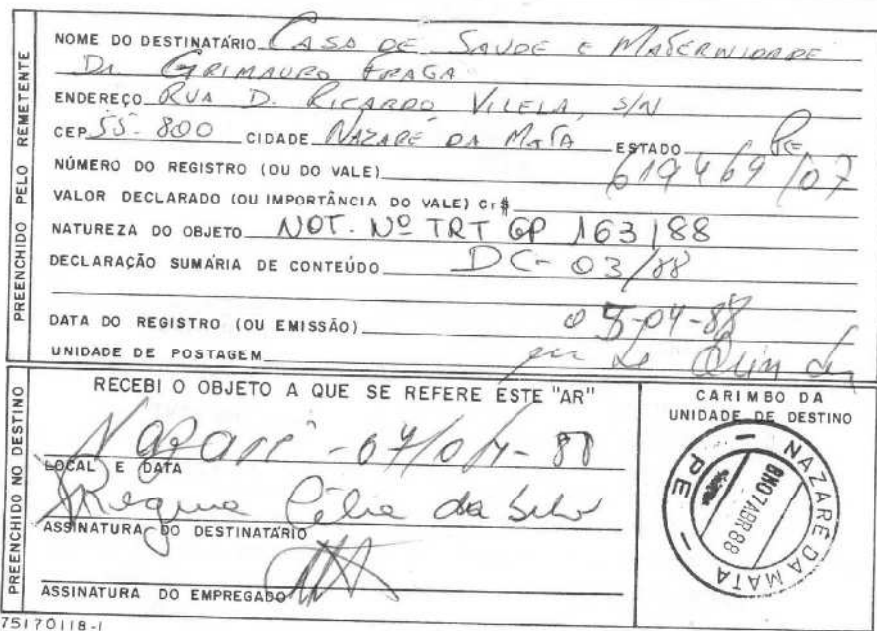 PREENCHIDO PELO REMETENTE
NOME DO DESTINATÁRIO CASA DE SAUDE E MATERNIDADE
Dr. GRIMAURO FRAGA
ENDEREÇO RUA D. RICARDO VILELA, S/N
CEP 55-800 CIDADE NAZARÉ DA MATA ESTADO PE
NÚMERO DO REGISTRO (OU DO VALE) 619469/07
VALOR DECLARADO (OU IMPORTÂNCIA DO VALE) Cr$
NATUREZA DO OBJETO NOT. Nº TRT GP 163/88
DECLARAÇÃO SUMÁRIA DE CONTEÚDO DC-03/88
DATA DO REGISTRO (OU EMISSÃO) 05-04-88
UNIDADE DE POSTAGEM
PREENCHIDO NO DESTINO
RECEBI O OBJETO A QUE SE REFERE ESTE "AR"
Nazaré - 07/04-88
LOCAL E DATA
Regina Célia da Silva
ASSINATURA DO DESTINATÁRIO
ASSINATURA DO EMPREGADO
CARIMBO DA
UNIDADE DE DESTINO
NAZARÉ DA MATA - PE -
07ABR88
75170118-1